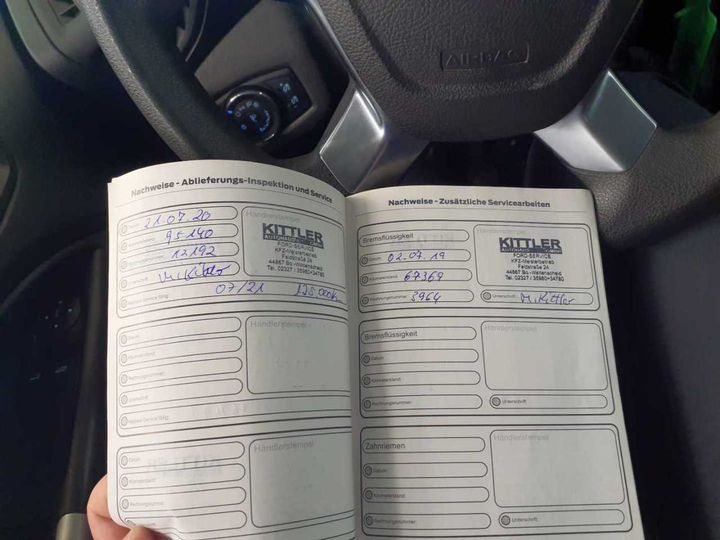 AIRBAG
Nachweise - Ablieferungs-Inspektion und Service
Datum 21.07.20
95140
12192
M. Kittler
Nächster Service fällig 07/21 125.000k
Händlerstempel
KITTLER
AUTOHAUS
FORD-SERVICE
KFZ-Meisterbetrieb
Feldstraße 24
44867 Bo.-Wattenscheid
Tel. 02327 / 35980+34780
Datum
Kilometerstand
Rechnungsnummer
Unterschrift
Nächster Service fällig
Händlerstempel
Datum
Kilometerstand
Rechnungsnummer
Händlerstempel
Nachweise - Zusätzliche Servicearbeiten
Bremsflüssigkeit
Datum 02.07.19
Kilometerstand 67369
Rechnungsnummer 3964
Händlerstempel
KITTLER
AUTOHAUS
FORD-SERVICE
KFZ-Meisterbetrieb
Feldstraße 24
44867 Bo.-Wattenscheid
Tel. 02327 / 35980+34780
Unterschrift M. Kittler
Bremsflüssigkeit
Datum
Kilometerstand
Rechnungsnummer
Händlerstempel
Unterschrift
Zahnriemen
Datum
Kilometerstand
Rechnungsnummer
Händlerstempel
Unterschrift